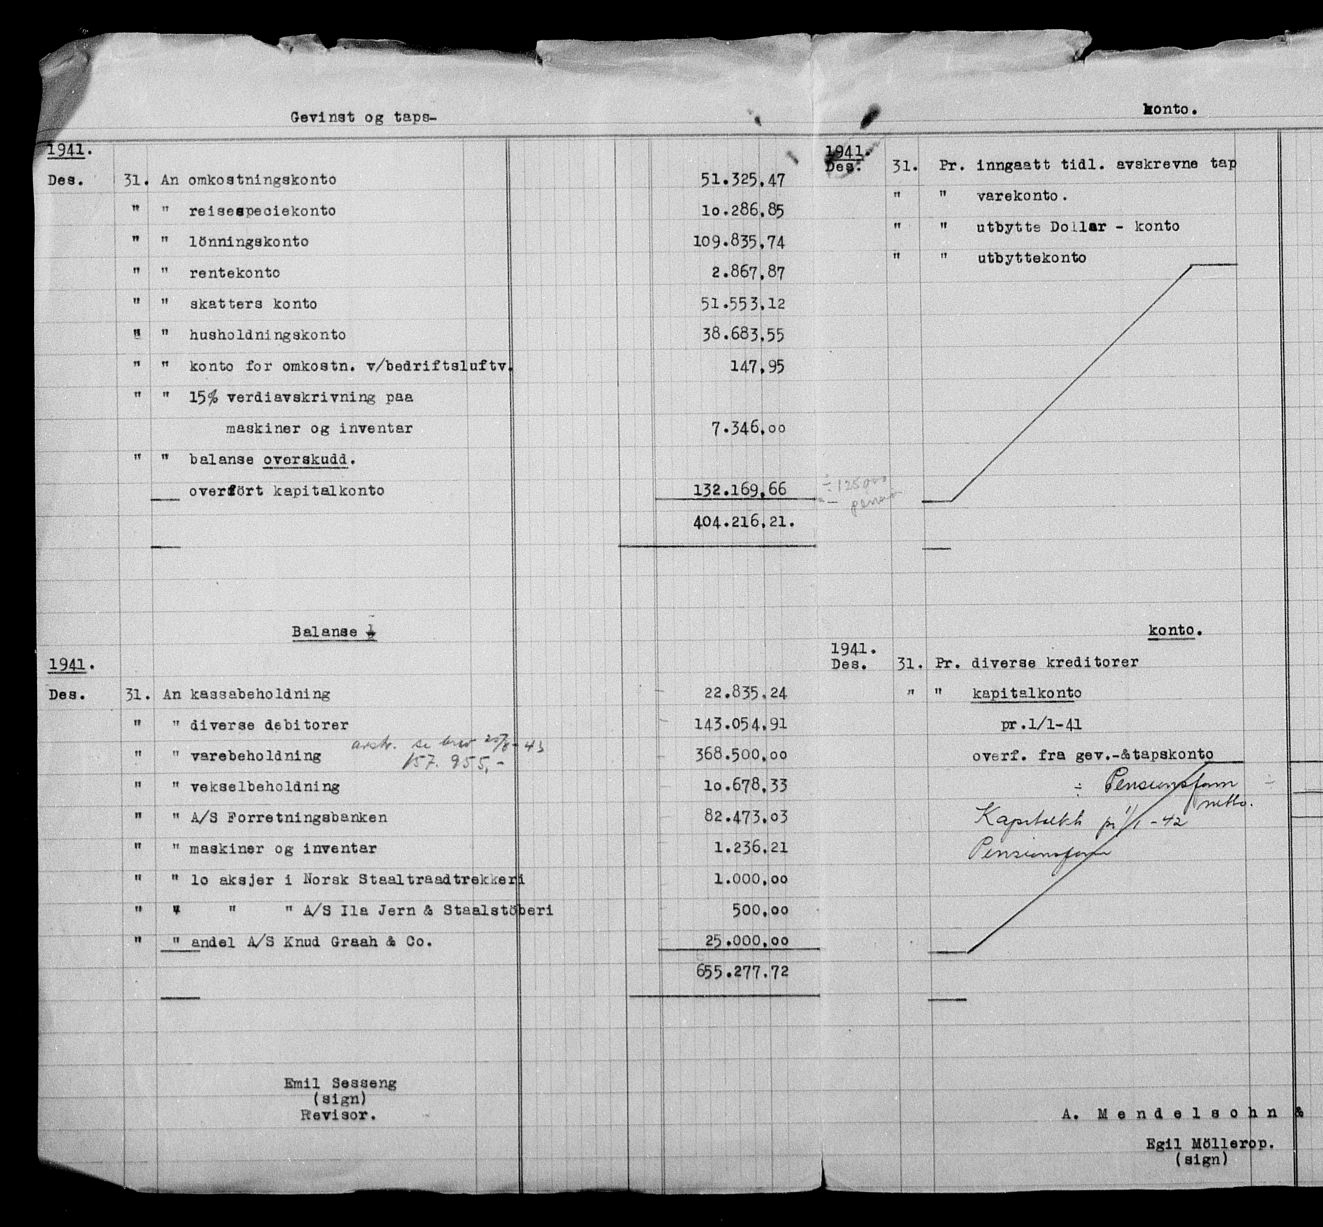 Gevinst og taps-
1941.
Des. 31. An omkostningskonto 51.325,47
" " reisespeciekonto lo.286,85
" " lönningskonto 109.835,74
" " rentekonto 2.867,87
" " skatters konto 51.553,12
" " husholdningskonto 38.683,55
" " konto for omkostn. v/bedriftsluftv. 147,95
" " 15% verdiavskrivning paa
maskiner og inventar 7.346,oo
" " balanse overskudd.
overfört kapitalkonto 132.169,66
404.216,21.
Balanse
1941.
Des. 31. An kassabeholdning 22.835,24
" " diverse debitorer 143.054,91
" " varebeholdning 368.500,oo
avskr. se brev 43
157.955,-
" " vekselbeholdning lo.678,33
" " A/S Forretningsbanken 82.473,o3
" " maskiner og inventar 1.236,21
" " lo aksjer i Norsk Staaltraadtrekkeri 1.000,oo
" " " " A/S Ila Jern & Staalstöberi 500,oo
" " andel A/S Knud Graah & Co. 25.000,oo
655.277,72
Emil Sesseng
(sign)
Revisor.
konto.
1941.
Des. 31. Pr. inngaatt tidl. avskrevne tap
" " varekonto.
" " utbytte Dollar - konto
" " utbyttekonto
÷ 125000
konto.
1941.
Des. 31. Pr. diverse kreditorer
" " kapitalkonto
pr.1/1-41
overf. fra gev.-&tapskonto
÷ Pensjonsfom ÷
netto.
Kapitalkto pr 1/1-42
Pensjonsfom
A. Mendelsohn &
Egil Möllerop.
(sign)